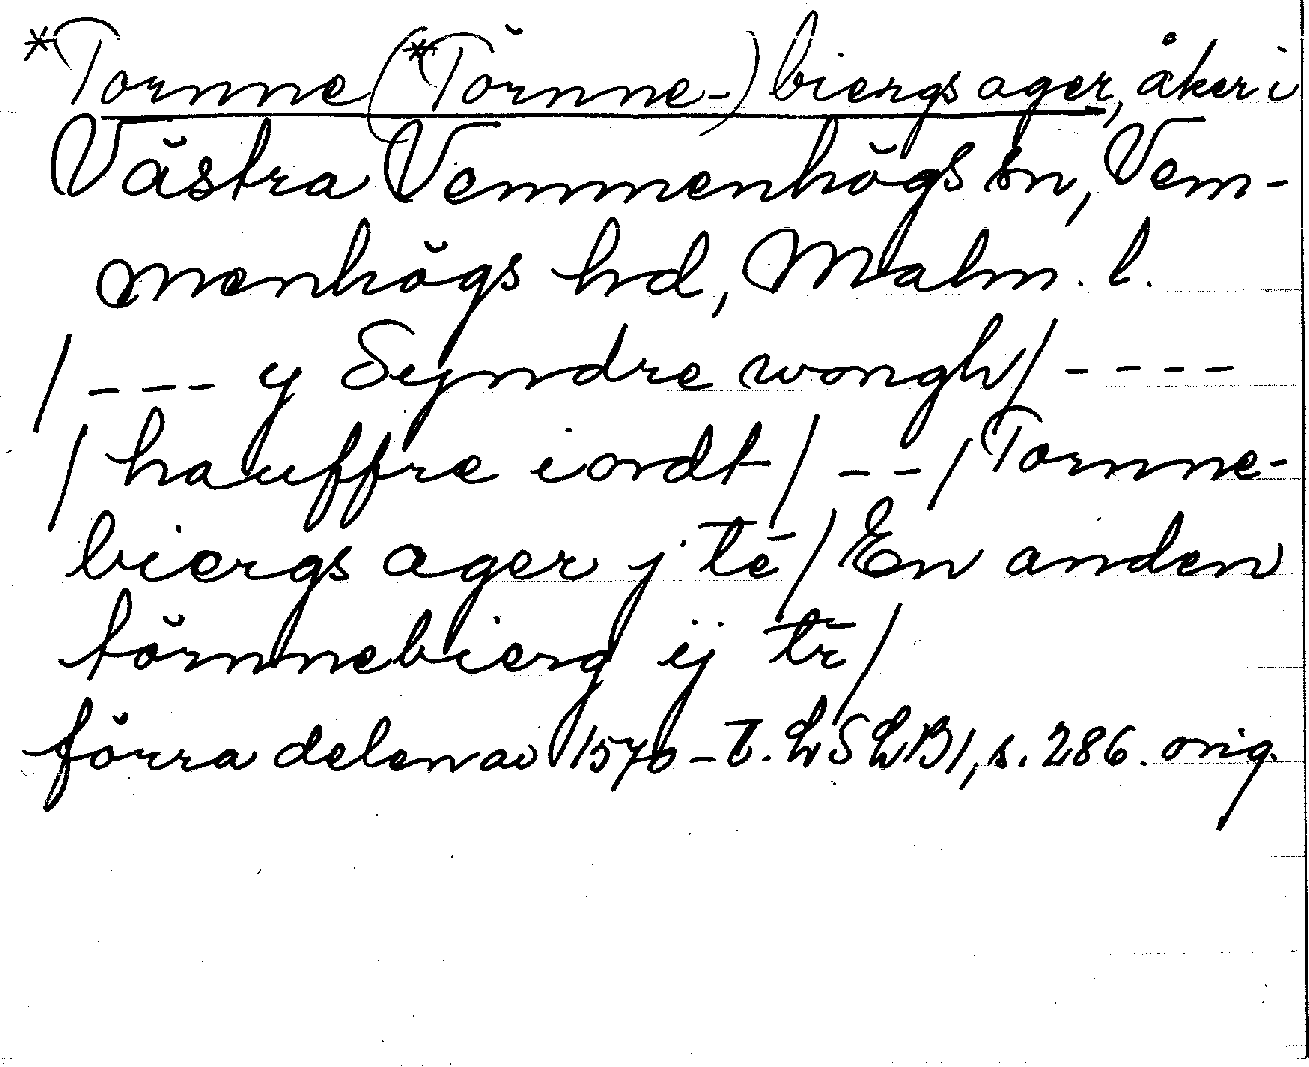 *Tornne (*Törnne-) biergs ager, åker i
Västra Vemmenhögs sn, Vem-
menhögs hd, Malm. l.
/ --- y Syndre wongh / ----
/ hauffre iordt / -- / Tornne-
biergs ager j tē / En anden
törnnebierg ij tr̄ /
förra delen av 1570-t. LSLB1, s. 286. orig.